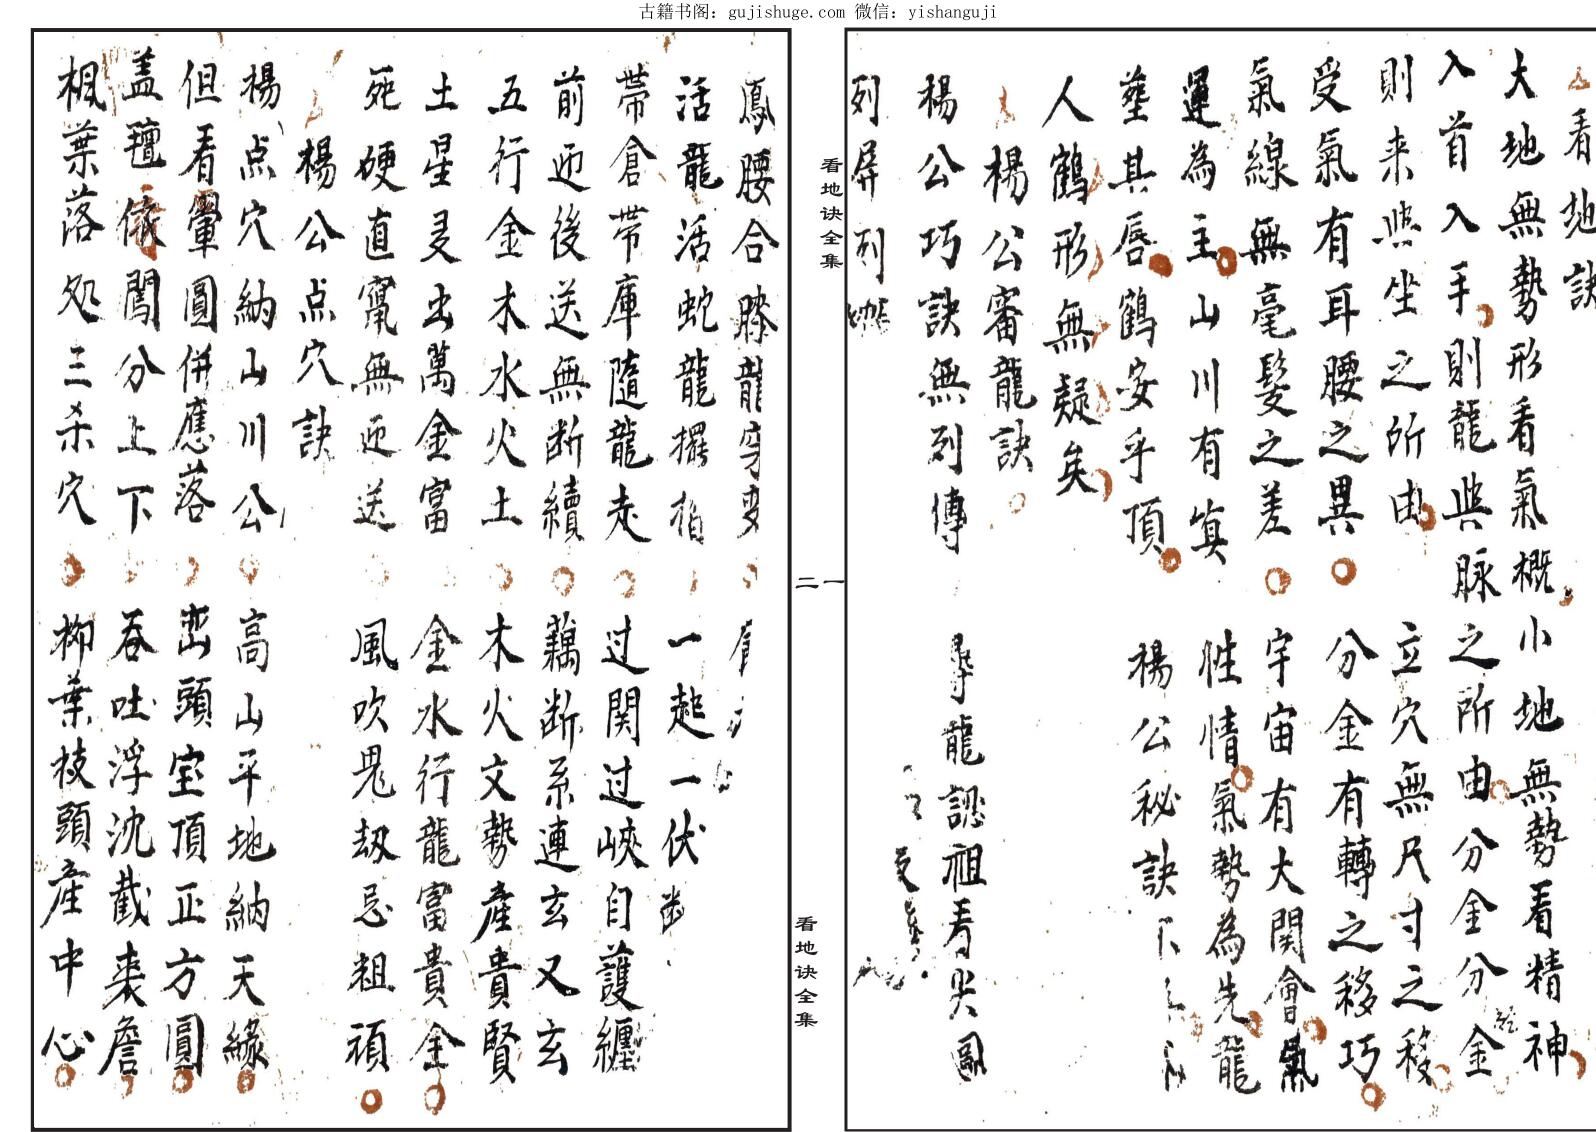 古籍书阁：gujishuge.com 微信：yishanguji
看地訣
大地無勢形看氣概小地無勢看精神
入首入手則龍與脉之所由分金分金
則来與坐之所由立穴無尺寸之移
受氣有耳腰之異分金有轉之移巧
氣線無毫髮之差宇宙有大関會氣
運為主山川有真性情氣勢為先龍
塟其唇鶴安乎頂楊公秘訣下
人鶴形無疑矣
楊公審龍訣
楊公巧訣無列傳尋龍認祖看尖圓
列屏列
看地诀全集
一
鳳腰合膝龍穿
活龍活蛇龍擺一起一伏断
帶倉帶庫隨龍走过関过峽自護纏
前迎後送無断續藕断系連玄又玄
五行金木水火土木火文勢產貴賢
土星旻出萬金富金水行龍富貴全
死硬直窜無迎送風吹鬼刼忌粗頑
楊公点穴訣
楊点穴納山川公高山平地納天緣
但看暈圓併應落巒頭宝頂正方圓
盖氊依闊分上下吞吐浮沈截来詹
楓葉落処三杀穴柳葉枝頭產中心
看地诀全集
二